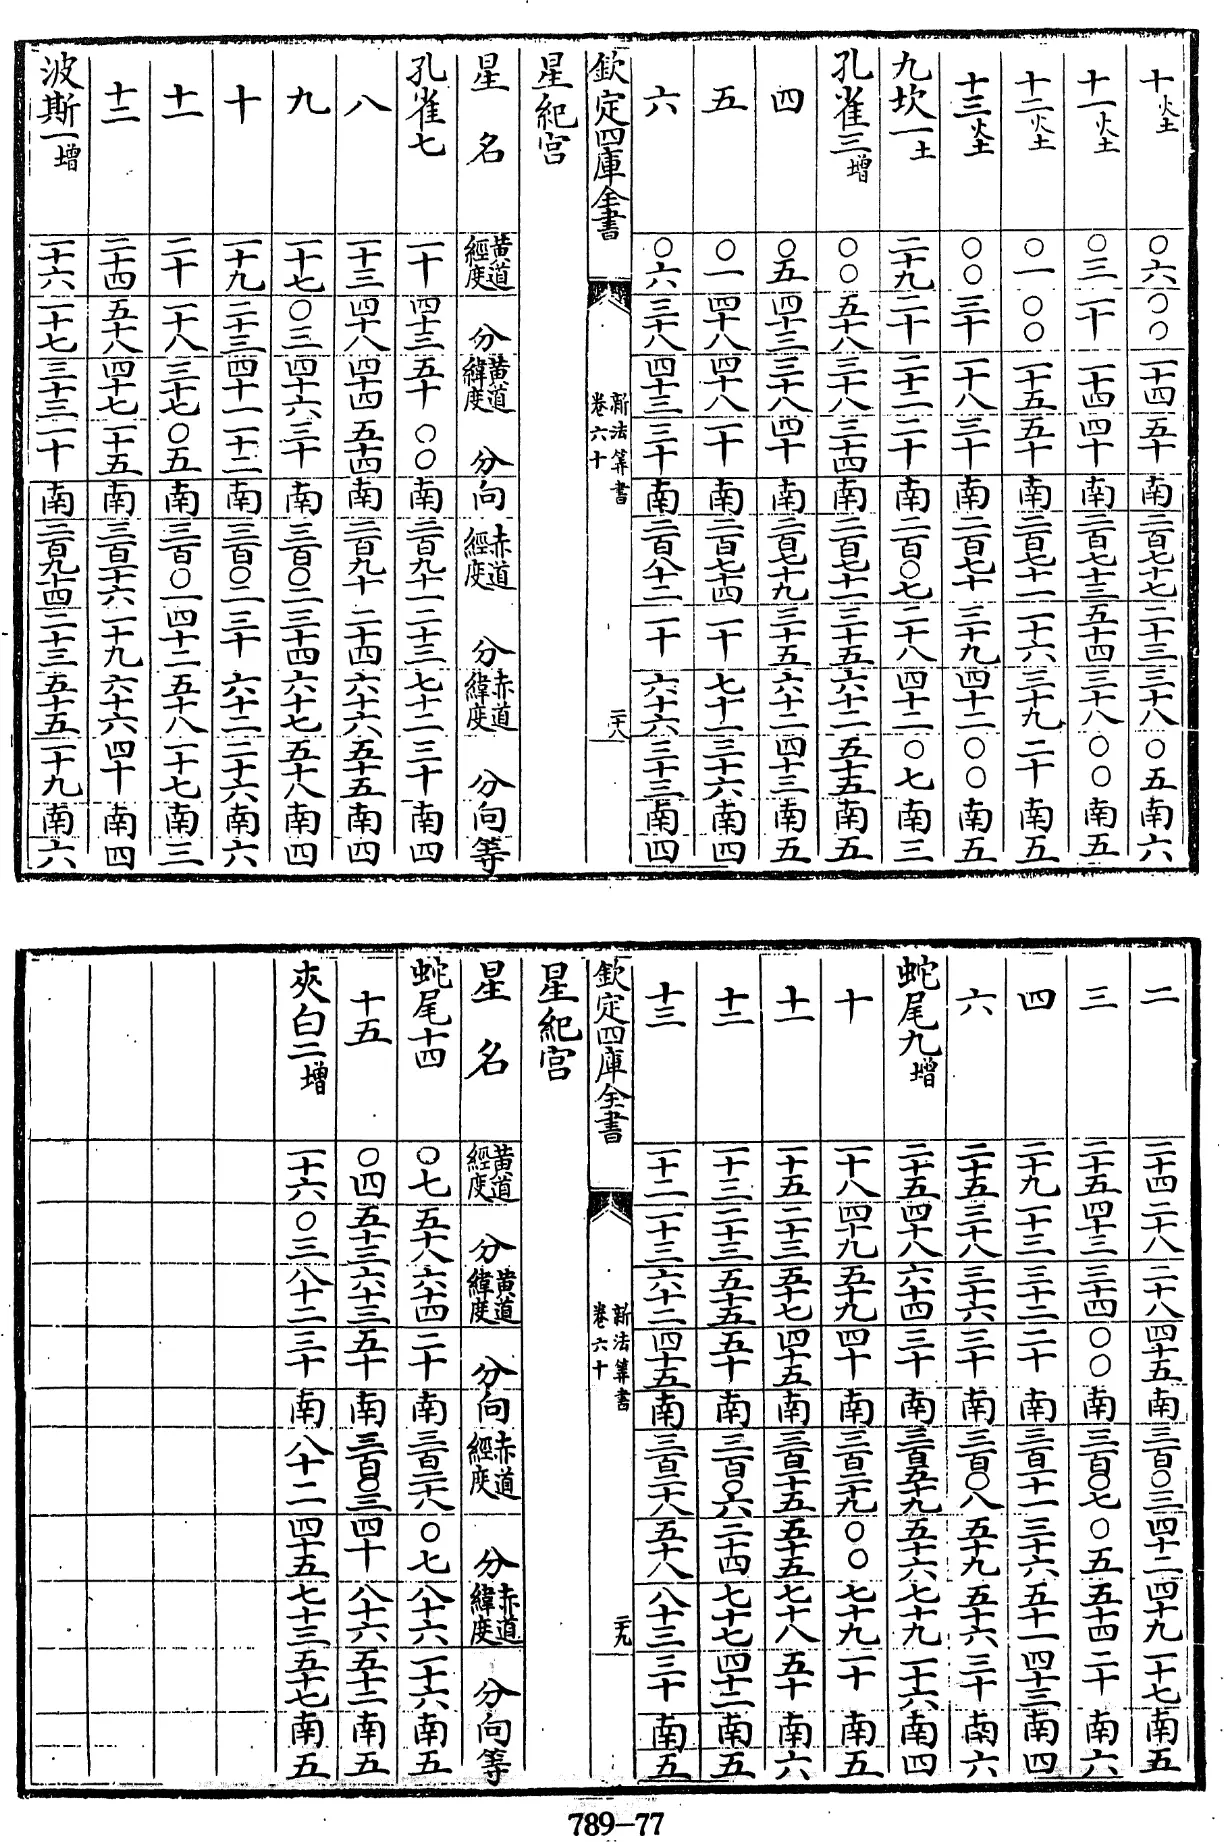 十火土 〇六 〇〇 一十四 五十 南 二百七十七 二十三 三十八 〇五 南 六
十一火土 〇三 一十 一十四 四十 南 二百七十三 五十四 三十八 〇〇 南 五
十二火土 〇一 〇〇 一十五 五十 南 二百七十一 一十六 三十九 二十 南 五
十三火土 〇〇 三十 一十八 三十 南 二百七十 三十九 四十二 〇〇 南 五
九坎一土 二十九 二十 二十二 二十 南 二百〇七 二十八 四十二 〇七 南 三
孔雀三增 〇〇 五十八 三十八 三十四 南 二百七十一 三十五 六十二 五十五 南 五
四 〇五 四十三 三十八 四十 南 二百七十九 三十五 六十二 四十三 南 五
五 〇一 四十八 四十八 一十 南 二百七十四 一十 七十一 三十六 南 四
六 〇六 三十八 四十三 三十 南 二百八十二 一十 六十六 三十三 南 四
欽定四庫全書 新法算書 卷六十 二十八
星紀宮
星名 黃道經度 分 黃道緯度 分 向 赤道經度 分 赤道緯度 分 向 等
孔雀七 一十 四十三 五十 〇〇 南 二百九十一 二十三 七十二 三十 南 四
八 一十三 四十八 四十四 五十四 南 二百九十 二十四 六十六 五十五 南 四
九 一十七 〇三 四十六 三十 南 三百〇二 三十四 六十七 五十八 南 四
十 一十九 二十三 四十一 一十二 南 三百〇二 三十 六十二 二十六 南 六
十一 二十 一十八 三十七 〇五 南 三百〇一 四十二 五十八 一十七 南 三
十二 二十四 五十八 四十七 一十五 南 三百一十六 一十九 六十六 四十 南 四
波斯一增 一十六 一十七 三十三 一十 南 二百九十四 二十三 五十五 一十九 南 六
二 二十四 二十八 二十八 四十五 南 三百〇三 四十二 四十九 一十七 南 五
三 二十五 四十三 三十四 〇〇 南 三百〇七 〇五 五十四 二十 南 六
四 二十九 一十三 三十二 二十 南 三百一十一 三十六 五十一 四十三 南 四
六 二十五 三十八 三十六 三十 南 三百〇八 五十九 五十六 三十 南 六
蛇尾九增 二十五 四十八 六十四 三十 南 三百五十九 五十六 七十九 一十六 南 四
十 一十八 四十九 五十九 四十 南 三百二十九 〇〇 七十九 一十 南 五
十一 一十五 二十三 五十七 四十五 南 三百一十五 五十五 七十八 五十 南 六
十二 一十三 二十三 五十五 五十 南 三百〇六 二十四 七十七 四十二 南 五
十三 一十二 一十三 六十二 四十五 南 三百二十八 五十八 八十三 三十 南 五
欽定四庫全書 新法算書 卷六十 二十九
星紀宮
星名 黃道經度 分 黃道緯度 分 向 赤道經度 分 赤道緯度 分 向 等
蛇尾十四 〇七 五十八 六十四 二十 南 三百二十八 〇七 八十六 一十六 南 五
十五 〇四 五十三 六十三 五十 南 三百〇三 四十 八十六 五十二 南 五
夾白二增 一十六 〇三 八十二 三十 南 八十二 四十五 七十三 五十七 南 五
789-77